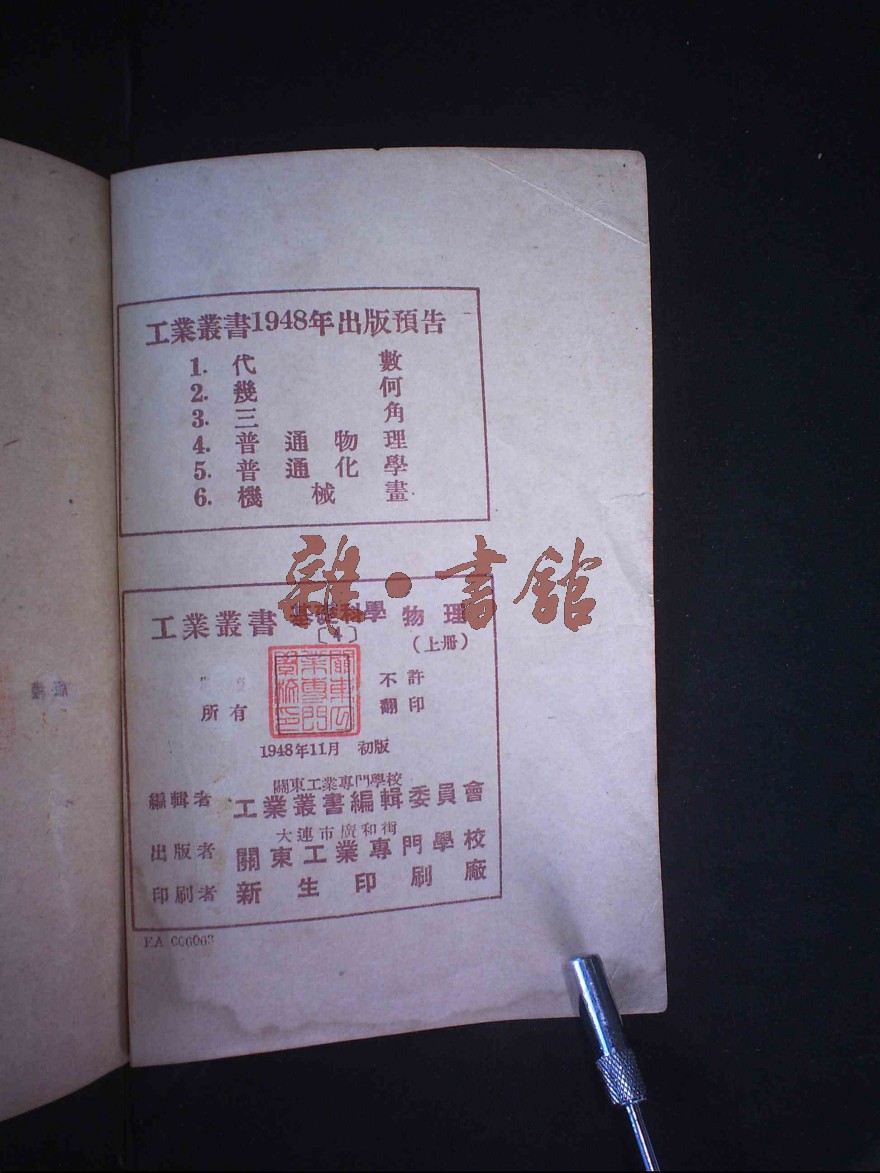 工業叢書1948年出版預告
1. 代數
2. 幾何
3. 三角
4. 普通物理
5. 普通化學
6. 機械畫
雜·書館
工業叢書 基礎科學 物理
〔4〕 (上册)
不許
所有 翻印
1948年11月 初版
關東工業專門學校
編輯者 工業叢書編輯委員會
大連市廣和街
出版者 關東工業專門學校
印刷者 新生印刷廠